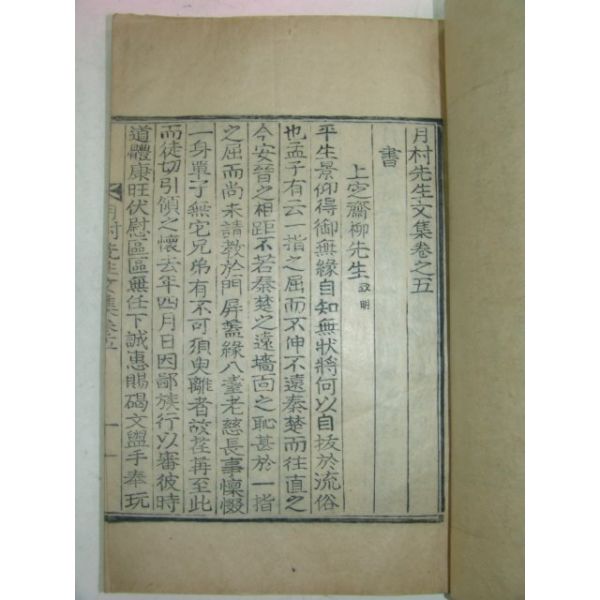 月村先生文集卷之五
書
上定齋柳先生 致明
平生景仰得御無緣自知無狀將何以自拔於流俗
也孟子有云一指之屈而不伸不遠秦楚而往直之
今安晉之相距不若秦楚之遠墻面之恥甚於一指
之屈而尚未請敎於門屛盖緣八耋老慈長事懍惙
一身單孑無它兄弟有不可須臾離者故荏苒至此
而徒切引領之懷去年四月日因鄙族行以審彼時
道體康旺伏慰區區無任下誠惠賜碣文盥手奉玩
月村先生文集卷五
一